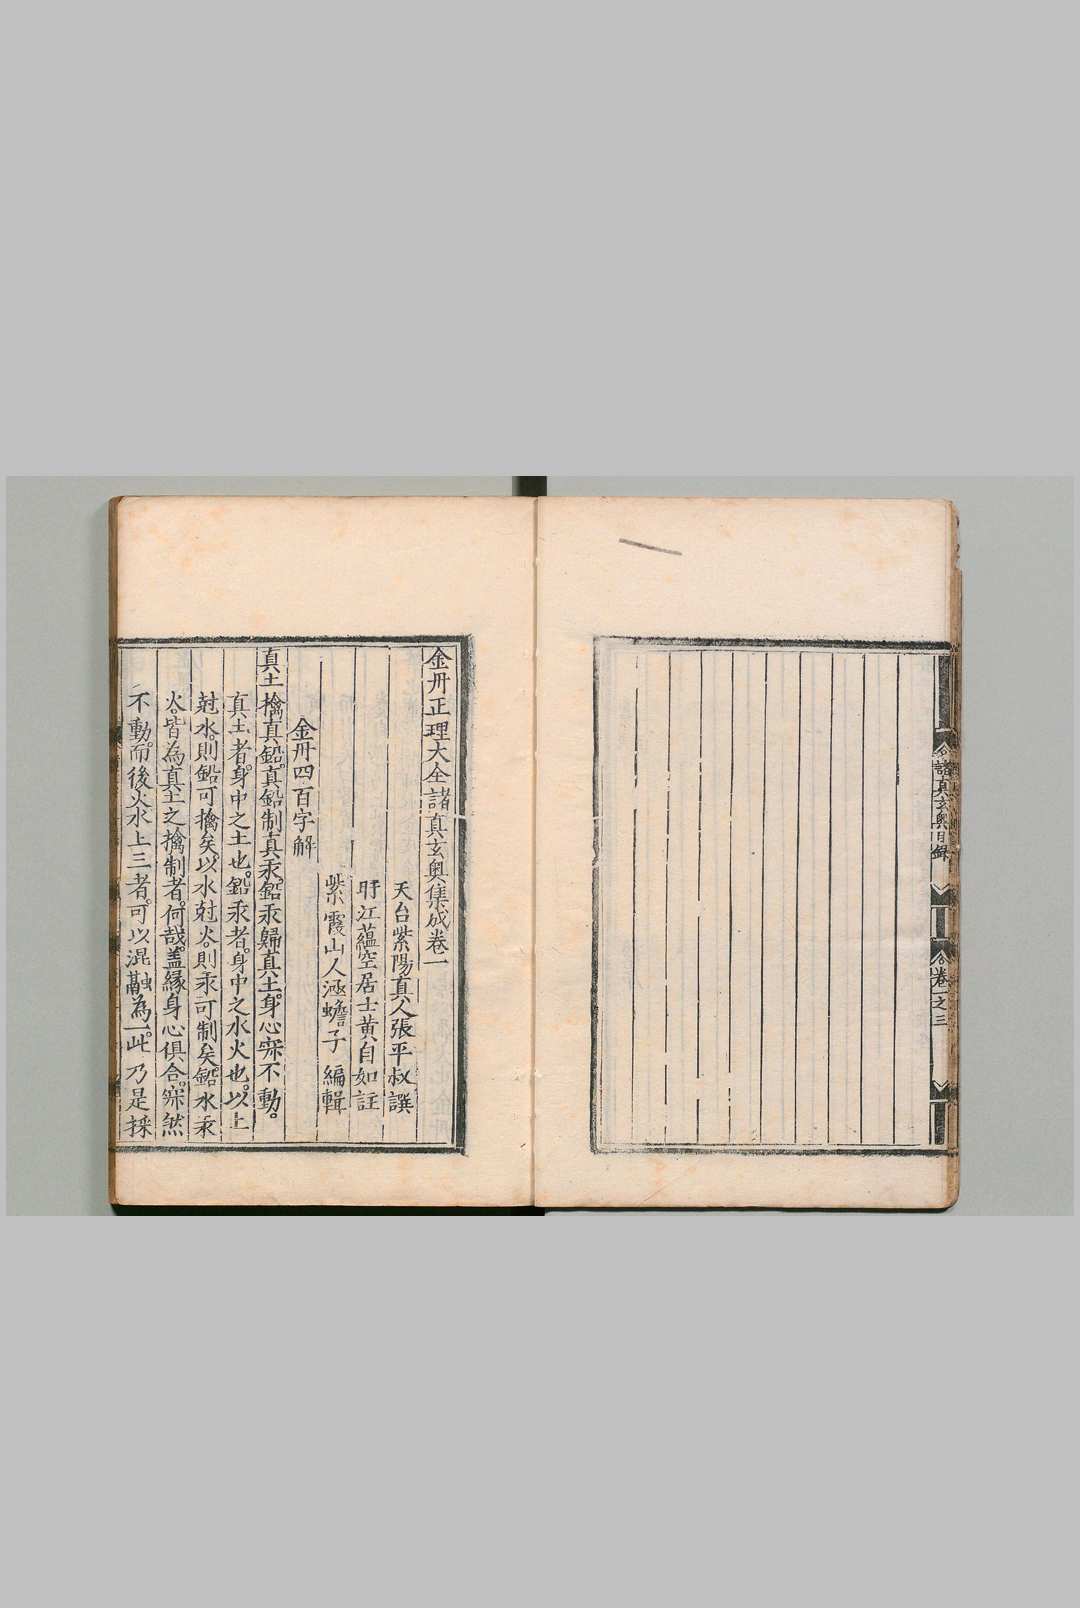 諸真玄奧目録
卷一之三
金丹正理大全諸真玄奧集成卷一
天台紫陽真人張平叔譔
盱江蘊空居士黃自如註
紫霞山人涵蟾子編輯
金丹四百字解
真土擒真鉛。真鉛制真汞。鉛汞歸真土。身心寂不動。
真土者。身中之土也。鉛汞者。身中之水火也。以土
尅水。則鉛可擒矣。以水尅火。則汞可制矣。鉛水汞
火。皆為真土之擒制者。何哉。盖緣身心俱合。寂然
不動。而後火水土三者。可以混融為一。此乃是採